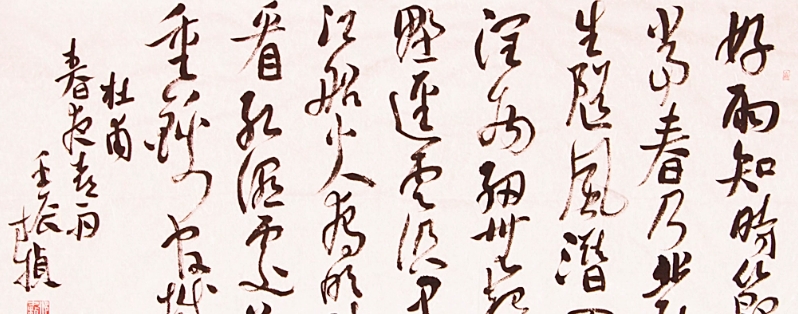 好雨知時節
當春乃發
生隨風潛
潤物細無聲
野徑雲俱黑
江船火獨明
看紅濕處花
重錦官城
杜甫
春夜喜雨
壬辰